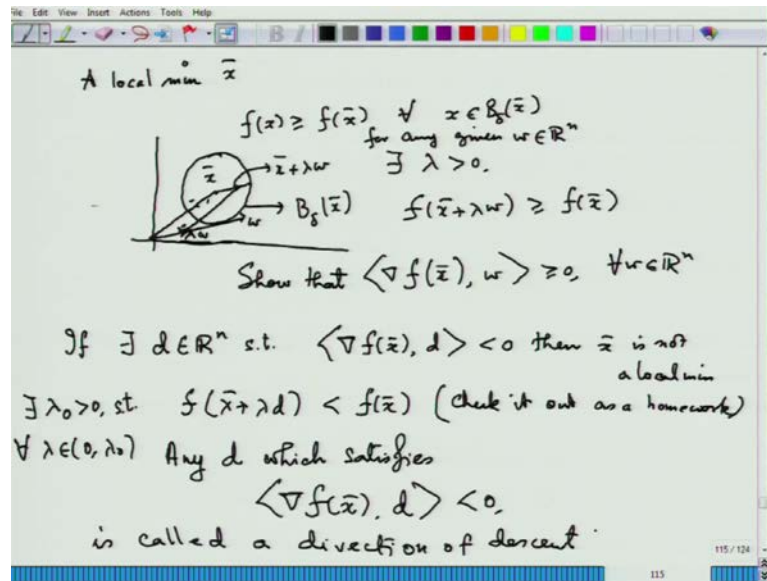 File Edit View Insert Actions Tools Help
A local min x̄
f(x) ≥ f(x̄) ∀ x ∈ B_δ(x̄)
for any given w ∈ ℝⁿ
∃ λ > 0.
x̄
x̄ + λw
B_δ(x̄)
w
λw
f(x̄ + λw) ≥ f(x̄)
Show that ⟨∇f(x̄), w⟩ ≥ 0, ∀ w ∈ ℝⁿ
If ∃ d ∈ ℝⁿ s.t. ⟨∇f(x̄), d⟩ < 0 then x̄ is not
a local min
∃ λ₀ > 0, st. f(x̄ + λd) < f(x̄) (Check it out as a homework)
∀ λ ∈ (0, λ₀) Any d which satisfies
⟨∇f(x̄), d⟩ < 0,
is called a direction of descent
115 / 124
115